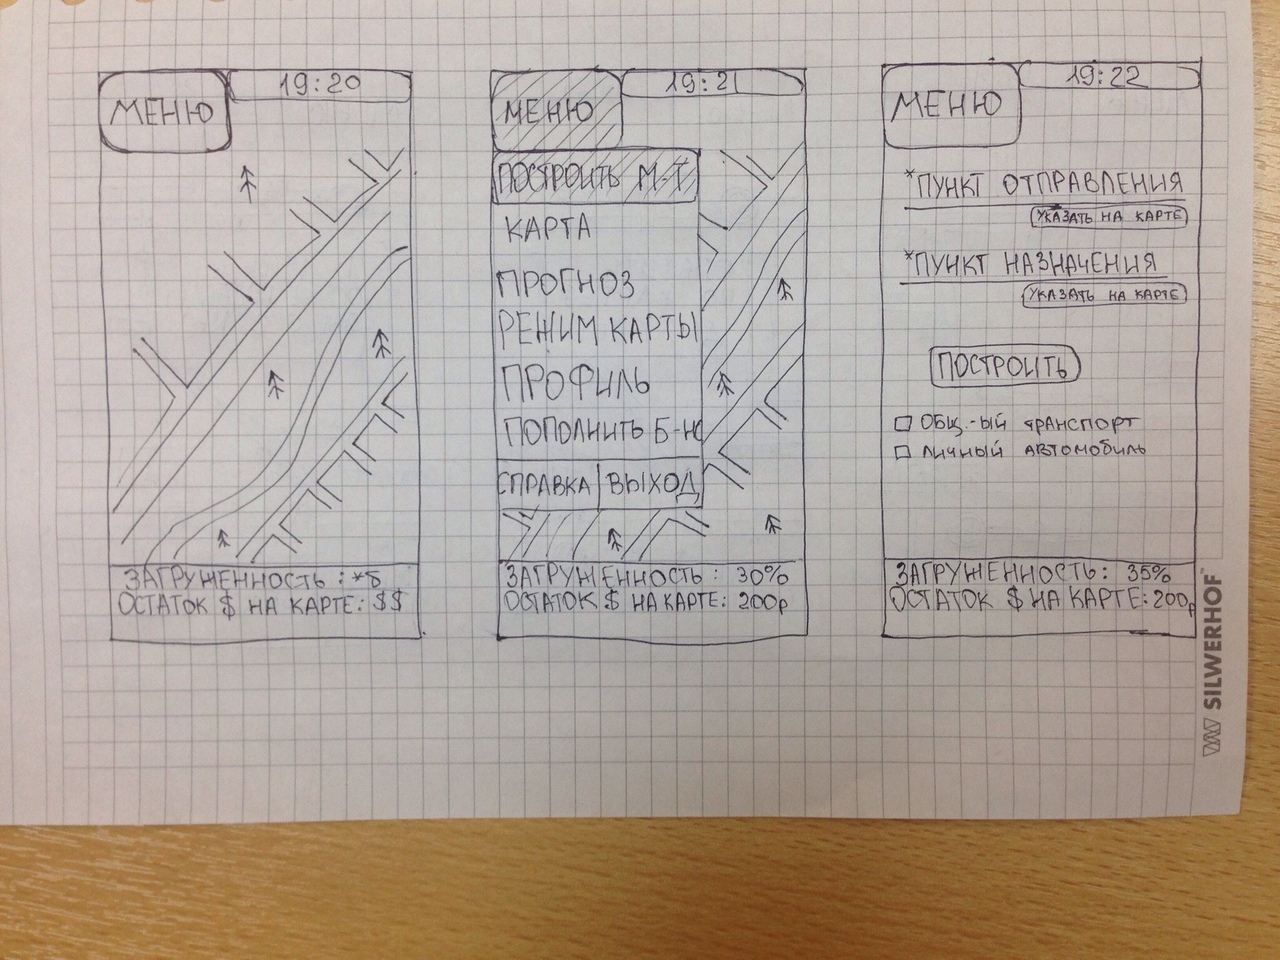 МЕНЮ
19:20
ЗАГРУЖЕННОСТЬ : *%
ОСТАТОК $ НА КАРТЕ: $$
МЕНЮ
19:21
ПОСТРОИТЬ М-Т
КАРТА
ПРОГНОЗ
РЕЖИМ КАРТЫ
ПРОФИЛЬ
ПОПОЛНИТЬ Б-НС
СПРАВКА
ВЫХОД
ЗАГРУЖЕННОСТЬ : 30%
ОСТАТОК $ НА КАРТЕ: 200р
МЕНЮ
19:22
*ПУНКТ ОТПРАВЛЕНИЯ
УКАЗАТЬ НА КАРТЕ
*ПУНКТ НАЗНАЧЕНИЯ
УКАЗАТЬ НА КАРТЕ
ПОСТРОИТЬ
ОБЩ.-ЫЙ ТРАНСПОРТ
ЛИЧНЫЙ АВТОМОБИЛЬ
ЗАГРУЖЕННОСТЬ: 35%
ОСТАТОК $ НА КАРТЕ: 200р
SILWERHOF